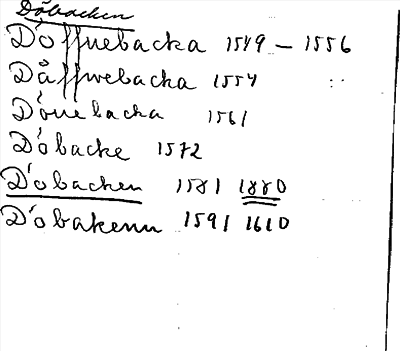 Döbacken
Döffuebacka 1549 – 1556
Dåffwebacka 1554
Döuebacka 1561
Döbacke 1572
Döbacken 1581 1880
Döbakenn 1591 1610